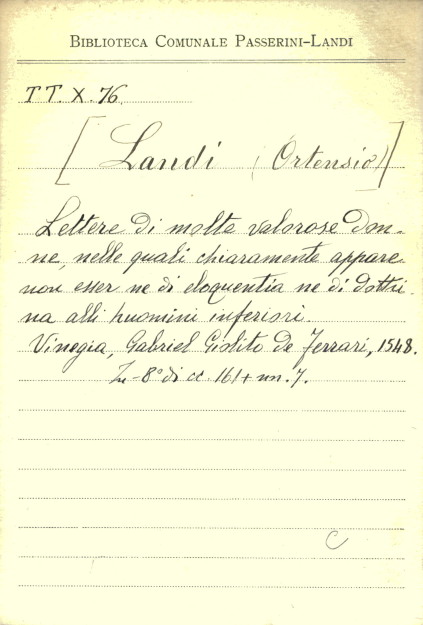 BIBLIOTECA COMUNALE PASSERINI-LANDI
TT. X. 76.
[Landi (Ortensio)]
Lettere di molte valorose don-
ne, nelle quali chiaramente appare
non esser ne di eloquentia ne di dottri-
na alli huomini inferiori.
Vinegia, Gabriel Giolito de Ferrari, 1548.
In-8° di cc. 161 + nn. 7.
C